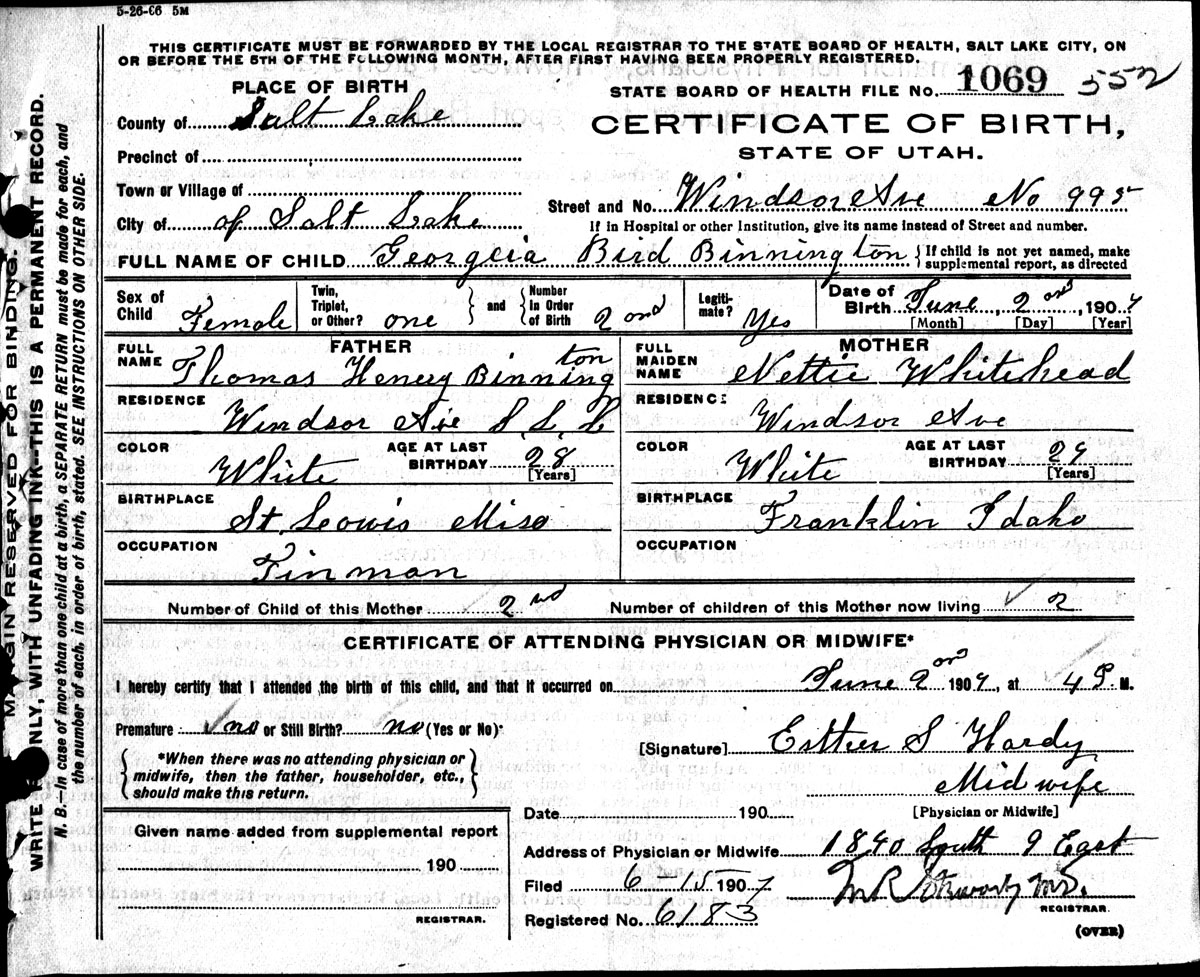 5-26-06 5M
THIS CERTIFICATE MUST BE FORWARDED BY THE LOCAL REGISTRAR TO THE STATE BOARD OF HEALTH, SALT LAKE CITY, ON
OR BEFORE THE 5TH OF THE FOLLOWING MONTH, AFTER FIRST HAVING BEEN PROPERLY REGISTERED.
PLACE OF BIRTH
STATE BOARD OF HEALTH FILE No. 1069 552
County of Salt Lake
CERTIFICATE OF BIRTH,
STATE OF UTAH.
Precinct of
Town or Village of
Street and No. Windsor Ave No 995
City of of Salt Lake
If in Hospital or other Institution, give its name instead of Street and number.
FULL NAME OF CHILD Georgeia Bird Binnington { If child is not yet named, make supplemental report, as directed
Sex of Child Female
Twin, Triplet, or Other? one } and { Number in Order of Birth 2ond
Legitimate? Yes
Date of Birth June, 2ond, 1907
[Month] [Day] [Year]
FATHER
FULL NAME Thomas Henery Binnington
RESIDENCE Windsor Ave S. L. C
COLOR White
AGE AT LAST BIRTHDAY 28 [Years]
BIRTHPLACE St. Lowis Miso
OCCUPATION Tinman
MOTHER
FULL MAIDEN NAME Nettie Whitehead
RESIDENCE Windsor Ave
COLOR White
AGE AT LAST BIRTHDAY 29 [Years]
BIRTHPLACE Franklin Idaho
OCCUPATION
Number of Child of this Mother 2nd Number of children of this Mother now living 2
CERTIFICATE OF ATTENDING PHYSICIAN OR MIDWIFE*
I hereby certify that I attended the birth of this child, and that it occurred on June 2ond 1907, at 4 P. M.
Premature no or Still Birth? no (Yes or No)*
[Signature] Esther S Hardy
{ *When there was no attending physician or midwife, then the father, householder, etc., should make this return. }
Midwife
[Physician or Midwife]
Date 190
Given name added from supplemental report
190
REGISTRAR.
Address of Physician or Midwife 1840 South 9 East
Filed 6-15-1907
REGISTRAR.
Registered No. 6183
(OVER)
MARGIN RESERVED FOR BINDING.
WRITE PLAINLY, WITH UNFADING INK--THIS IS A PERMANENT RECORD.
N. B.—In case of more than one child at a birth, a SEPARATE RETURN must be made for each, and
the number of each, in order of birth, stated. SEE INSTRUCTIONS ON OTHER SIDE.